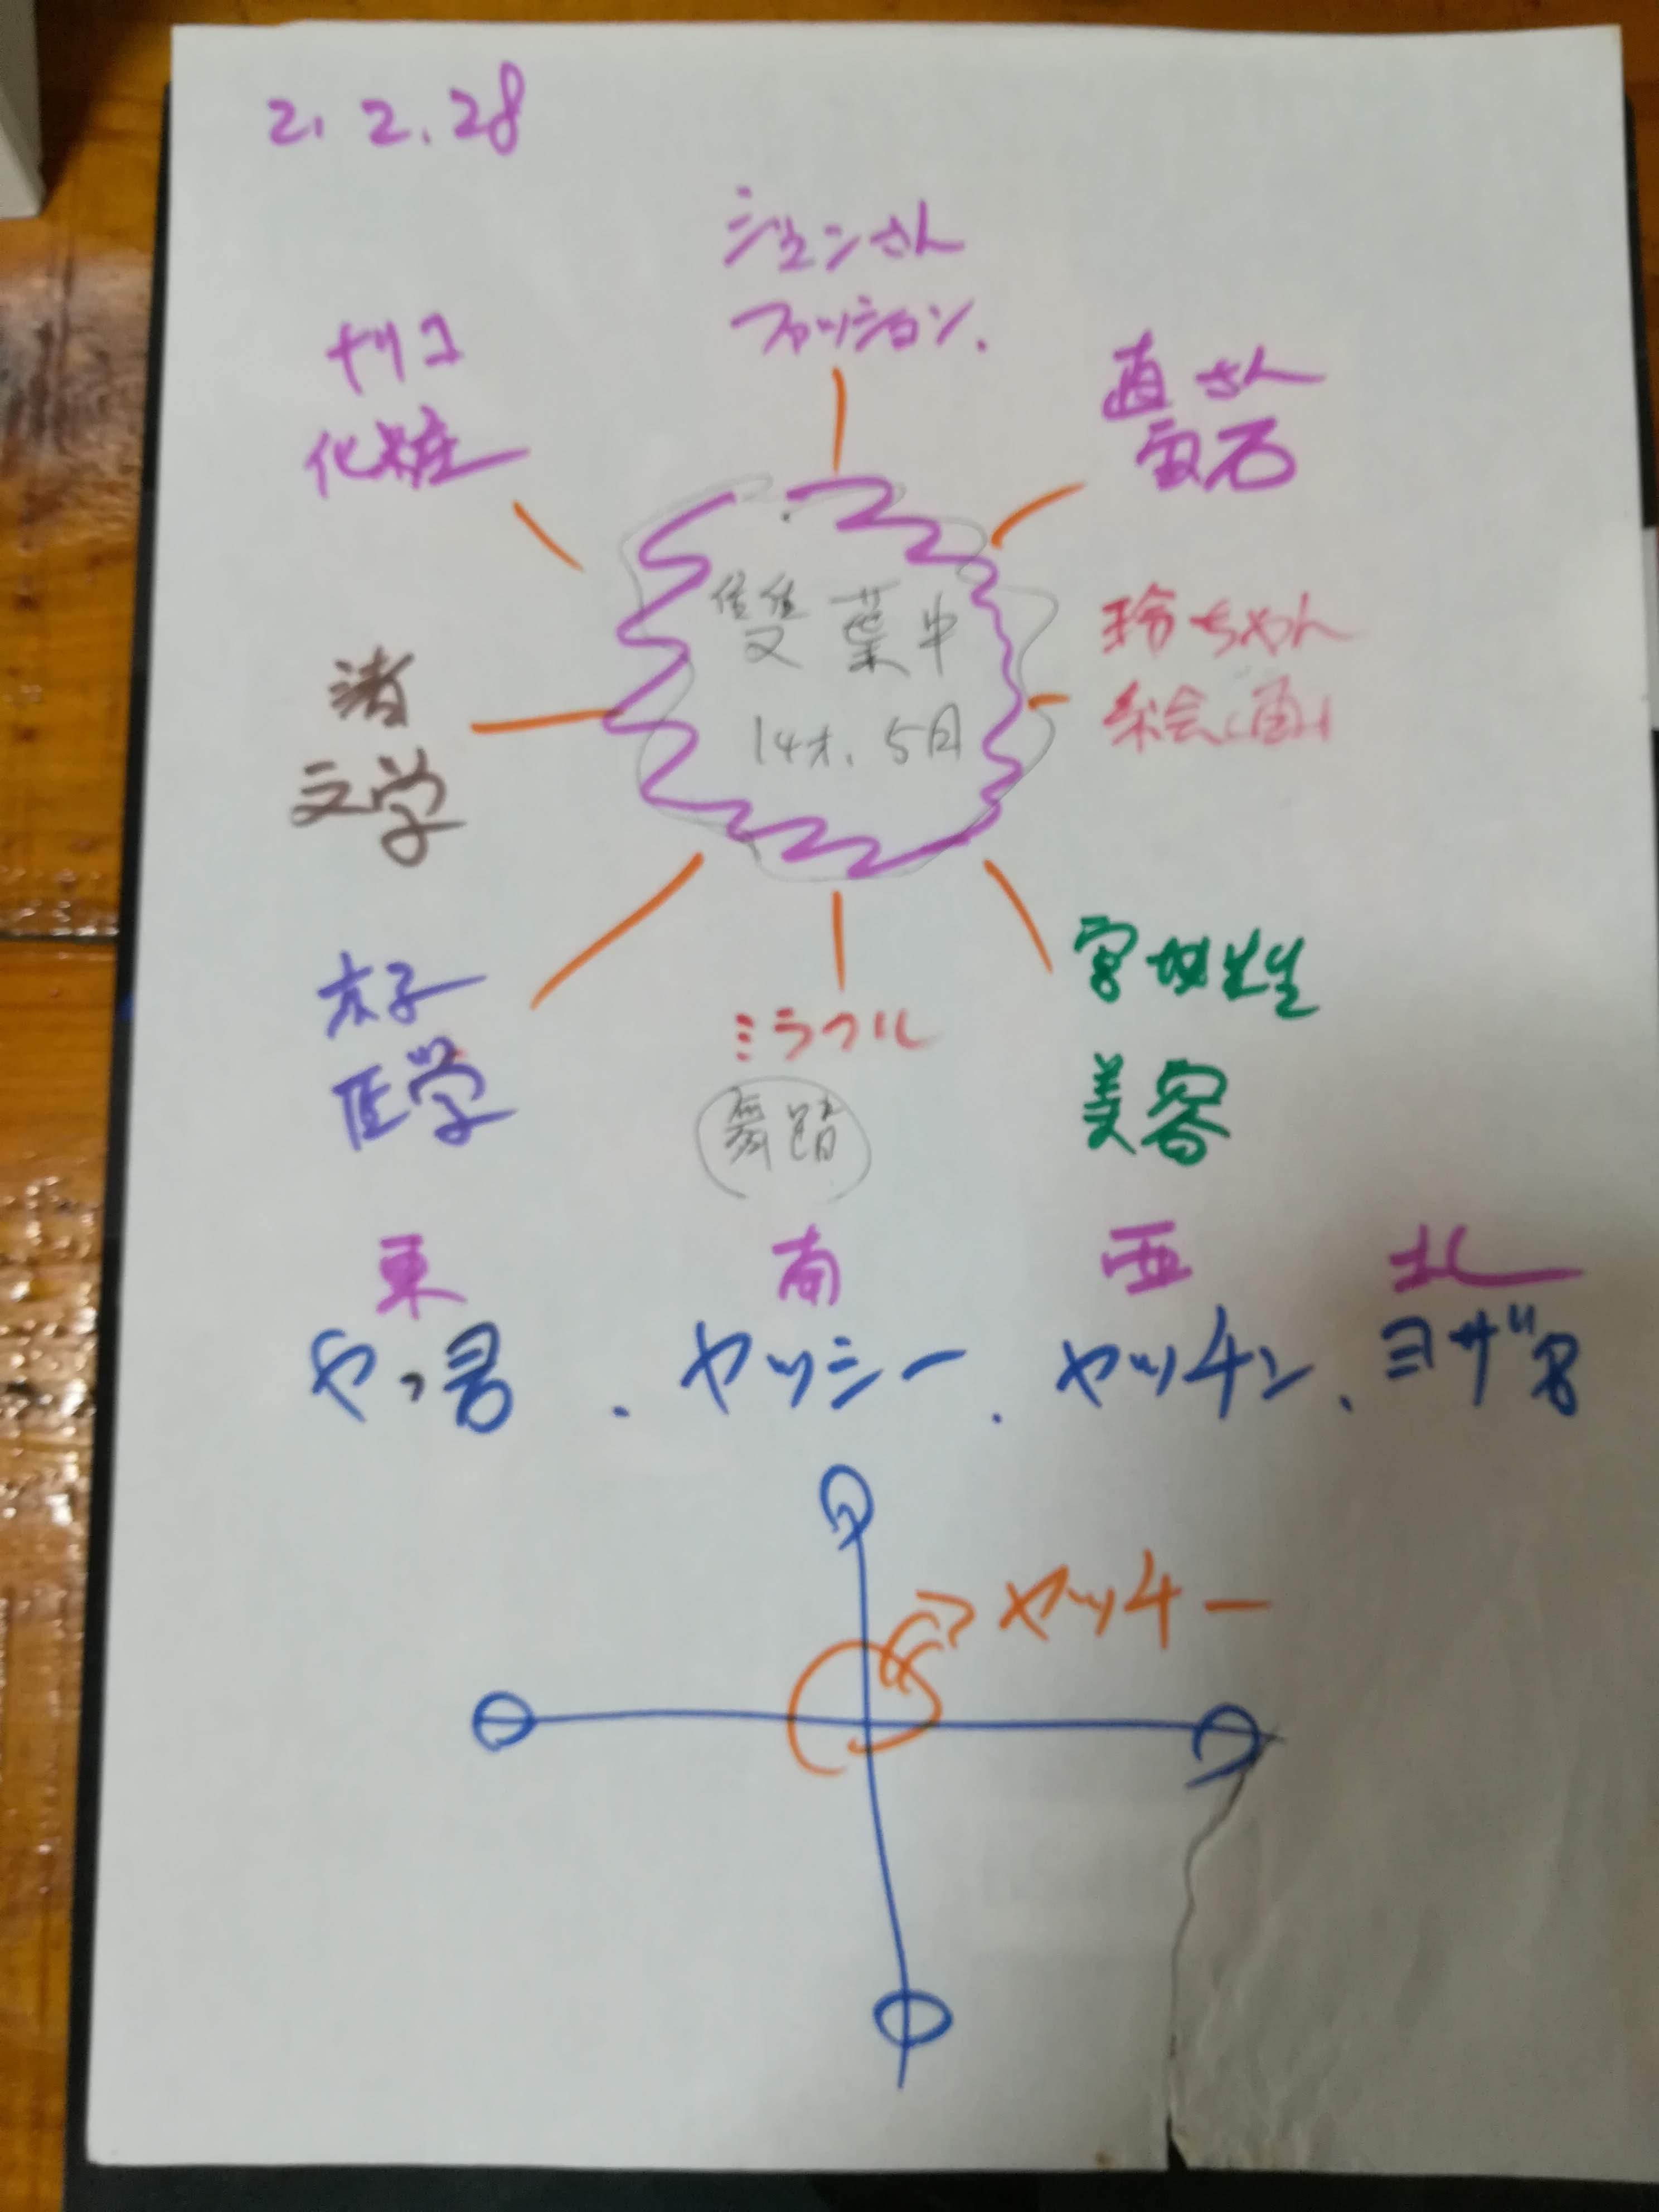 2. 2. 28
ジェンさん
ファッション.
ナリコ
化粧
直さん
宝石
雙葉中
14才. 5月
玲ちゃん
絵画
渚
文学
京子
医学
ミラクル
舞踏
宮城先生
美容
東 南 西 北
やっ君 . ヤッシー . ヤッチン . ヨザ君
ヤッチー